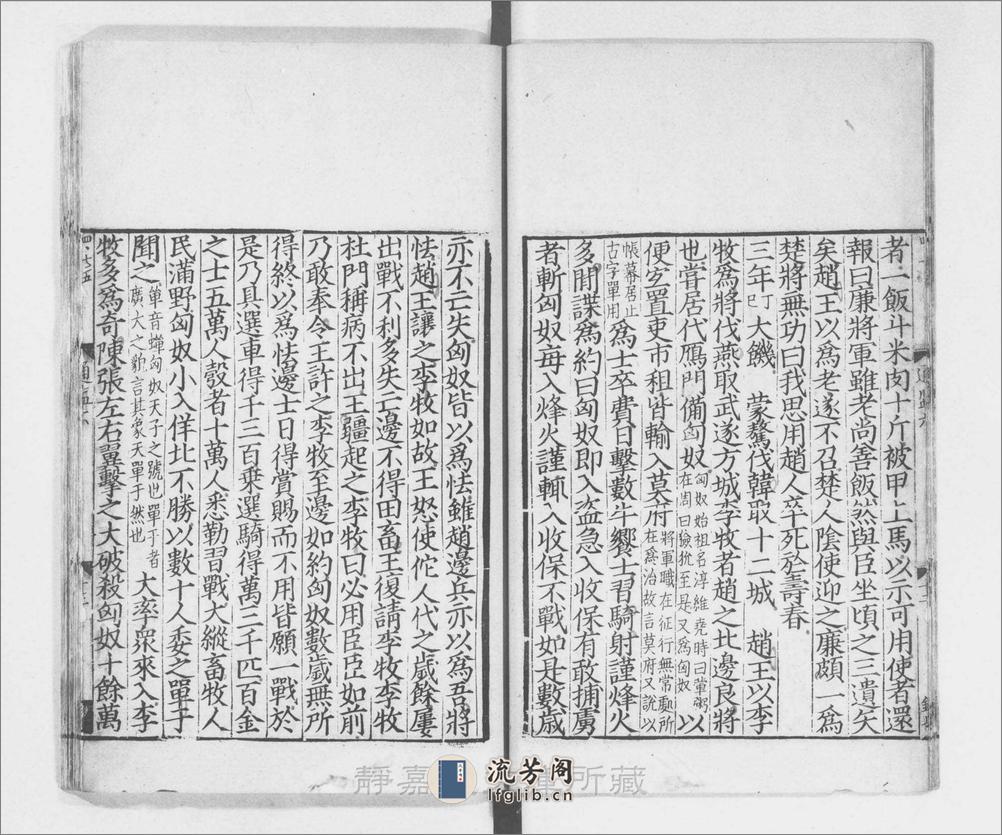 者一飯斗米肉十斤被甲上馬以示可用使者還
報曰廉將軍雖老尚善飯然與臣坐頃之三遺矢
矣趙王以爲老遂不召楚人陰使迎之廉頗一爲
楚將無功曰我思用趙人卒死於壽春
三年丁巳 大饑 蒙驁伐韓取十二城 趙王以李
牧爲將伐燕取武遂方城李牧者趙之北邊良將
也嘗居代鴈門備匈奴匈奴始祖名淳維堯時曰葷粥在周曰獫狁至是又爲匈奴以
便宜置吏市租皆輸入莫府將軍職在征行無常處所在爲治故言莫府又說以
帳幕居止古字單用爲士卒費日擊數牛饗士習騎射謹烽火
多間諜爲約曰匈奴即入盜急入收保有敢捕虜
者斬匈奴每入烽火謹輒入收保不戰如是數歲
亦不亡失匈奴皆以爲怯雖趙邊兵亦以爲吾將
怯趙王讓之李牧如故王怒使佗人代之歲餘屢
出戰不利多失亡邊不得田畜王復請李牧李牧
杜門稱病不出王彊起之李牧曰必用臣臣如前
乃敢奉令王許之李牧至邊如約匈奴數歲無所
得終以爲怯邊士日得賞賜而不用皆願一戰於
是乃具選車得千三百乘選騎得萬三千匹百金
之士五萬人彀者十萬人悉勒習戰大縱畜牧人
民滿野匈奴小入佯北不勝以數十人委之單于
聞之單音蟬匈奴天子之號也單于者廣大之貌言其象天單于然也大率眾來入李
牧多爲奇陳張左右翼擊之大破殺匈奴十餘萬
四七五
靜嘉 所藏
流芳阁
lfglib.cn